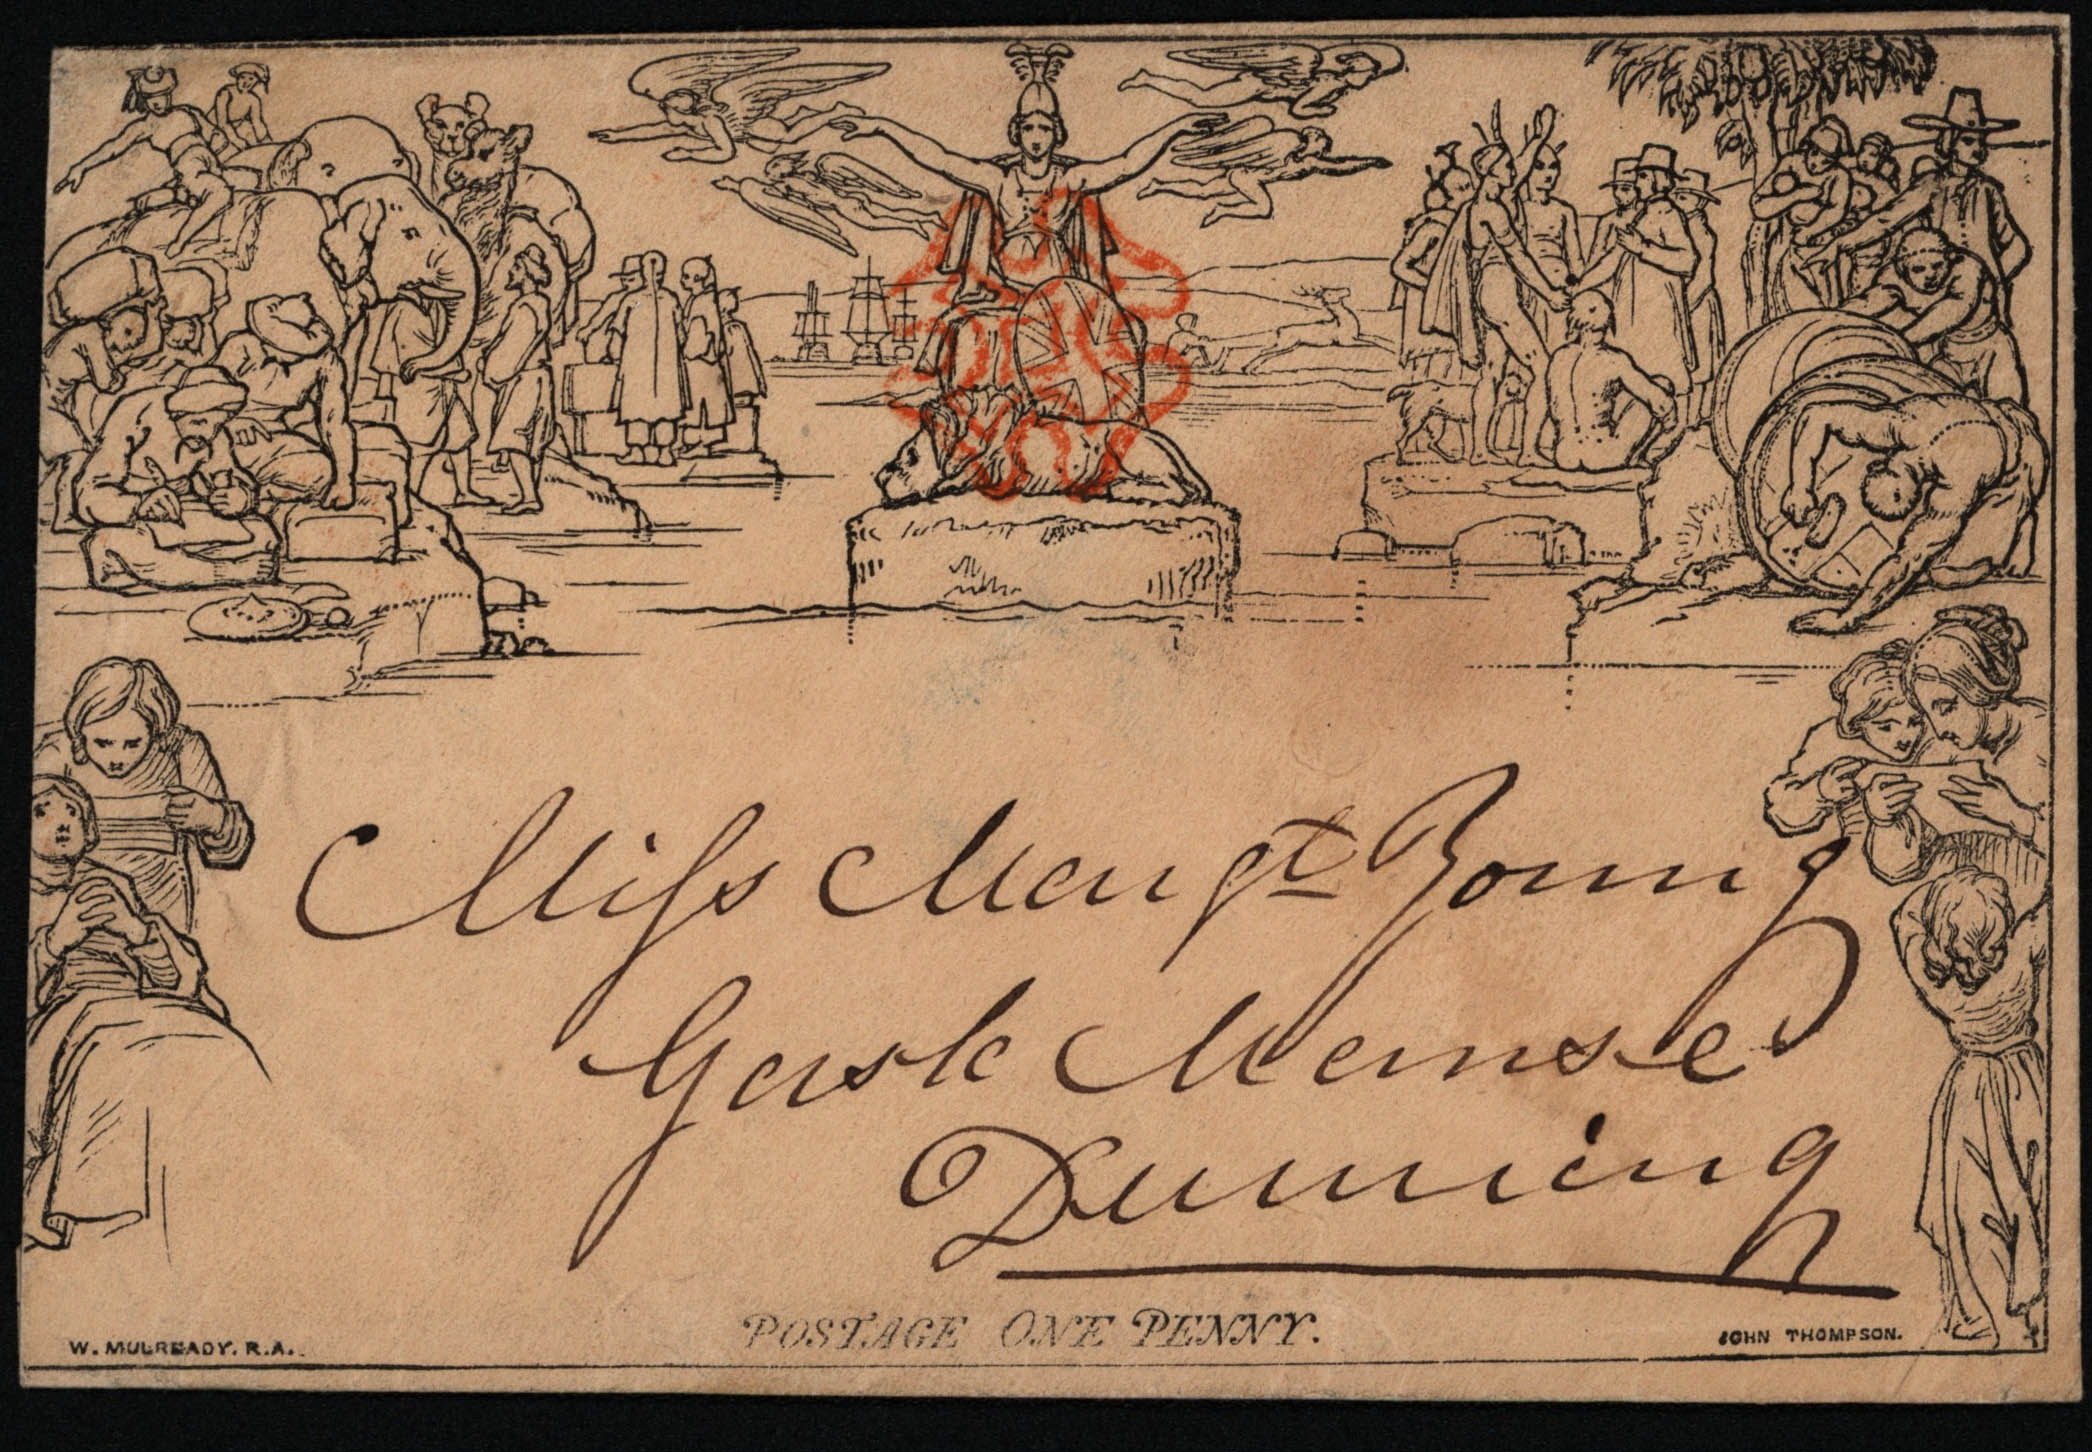 Miss Margt Young
Gask Manse
Dunning
POSTAGE ONE PENNY.
W. MULREADY. R.A.
JOHN THOMPSON.